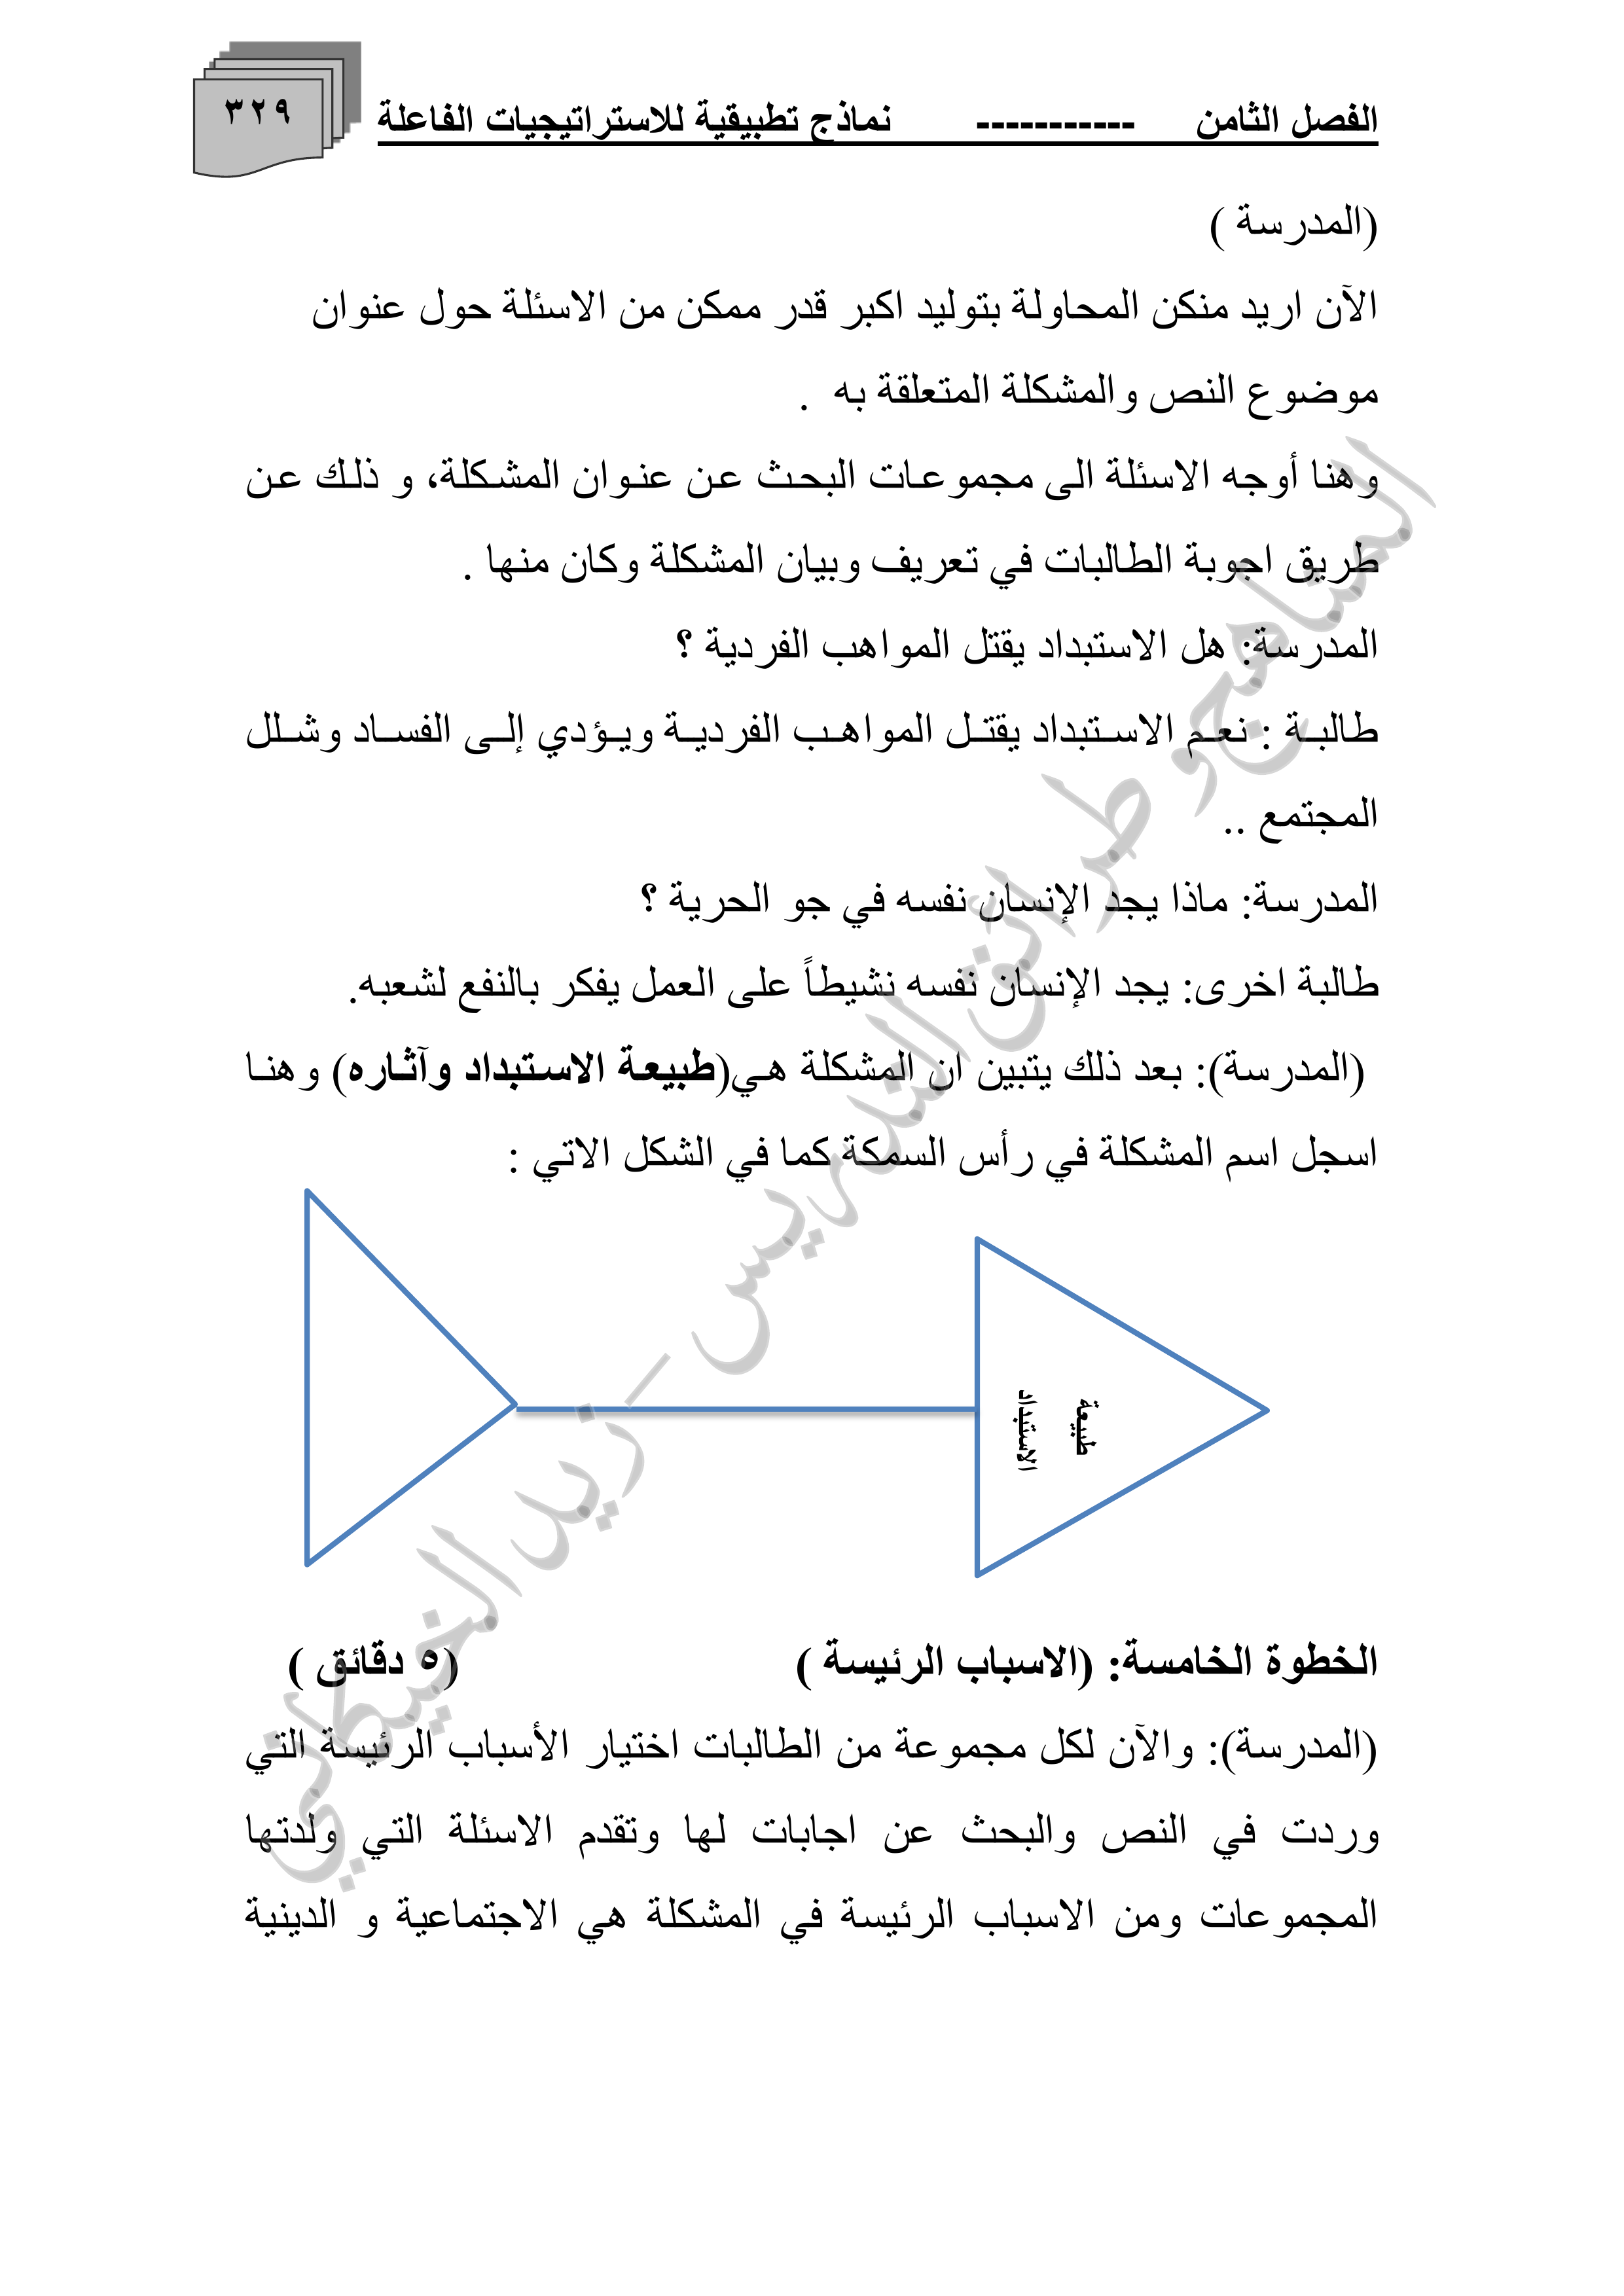 الفصل الثامن ----------- نماذج تطبيقية للاستراتيجيات الفاعلة
٣٢٩
(المدرسة )
الآن اريد منكن المحاولة بتوليد اكبر قدر ممكن من الاسئلة حول عنوان
موضوع النص والمشكلة المتعلقة به .
وهنا أوجه الاسئلة الى مجموعات البحث عن عنوان المشكلة، و ذلك عن
طريق اجوبة الطالبات في تعريف وبيان المشكلة وكان منها .
المدرسة: هل الاستبداد يقتل المواهب الفردية ؟
طالبة : نعم الاستبداد يقتل المواهب الفردية ويؤدي إلى الفساد وشلل
المجتمع ..
المدرسة: ماذا يجد الإنسان نفسه في جو الحرية ؟
طالبة اخرى: يجد الإنسان نفسه نشيطاً على العمل يفكر بالنفع لشعبه.
(المدرسة): بعد ذلك يتبين ان المشكلة هي(طبيعة الاستبداد وآثاره) وهنا
اسجل اسم المشكلة في رأس السمكة كما في الشكل الاتي :
طبيعة
الاستبداد
الخطوة الخامسة: (الاسباب الرئيسة ) (٥ دقائق )
(المدرسة): والآن لكل مجموعة من الطالبات اختيار الأسباب الرئيسة التي
وردت في النص والبحث عن اجابات لها وتقدم الاسئلة التي ولدتها
المجموعات ومن الاسباب الرئيسة في المشكلة هي الاجتماعية و الدينية
المناهج وطرائق التدريس - زيد الخيكاني